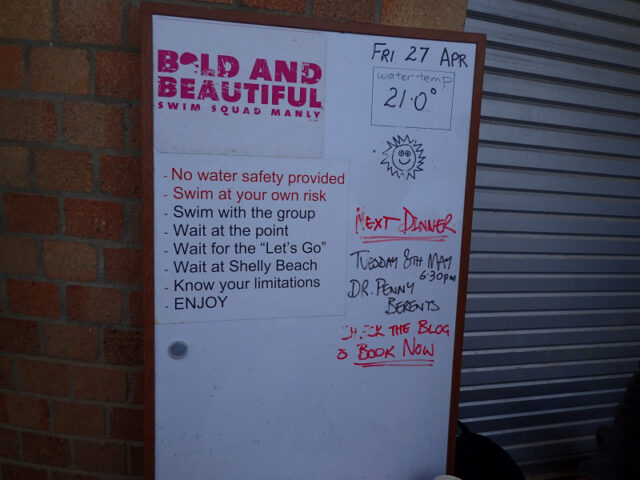 BOLD AND
BEAUTIFUL
SWIM SQUAD MANLY
FRI 27 APR
water temp
21.0°
- No water safety provided
- Swim at your own risk
- Swim with the group
- Wait at the point
- Wait for the "Let's Go"
- Wait at Shelly Beach
- Know your limitations
- ENJOY
NEXT DINNER
TUESDAY 8TH MAY
6:30pm
DR. PENNY
BERENTS
CHECK THE BLOG
& BOOK NOW